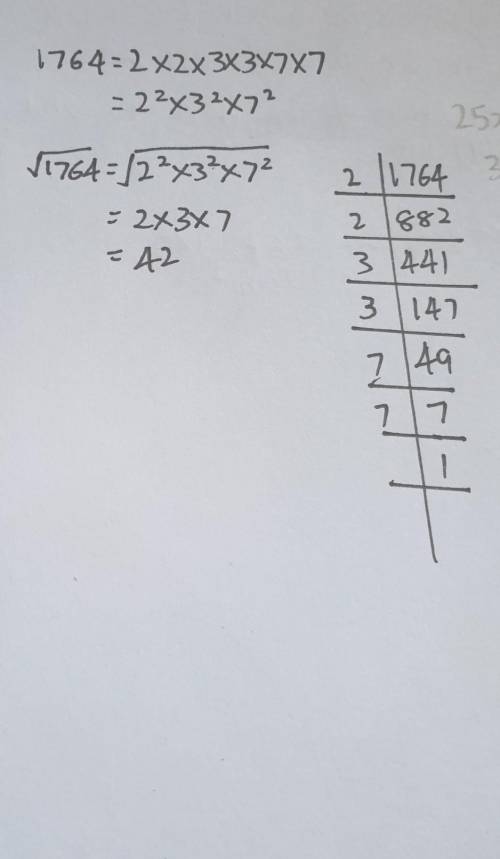 1764=2×2×3×3×7×7
=2²×3²×7²
√1764=√2²×3²×7²
=2×3×7
=42
2 1764
2 882
3 441
3 147
7 49
7 7
1